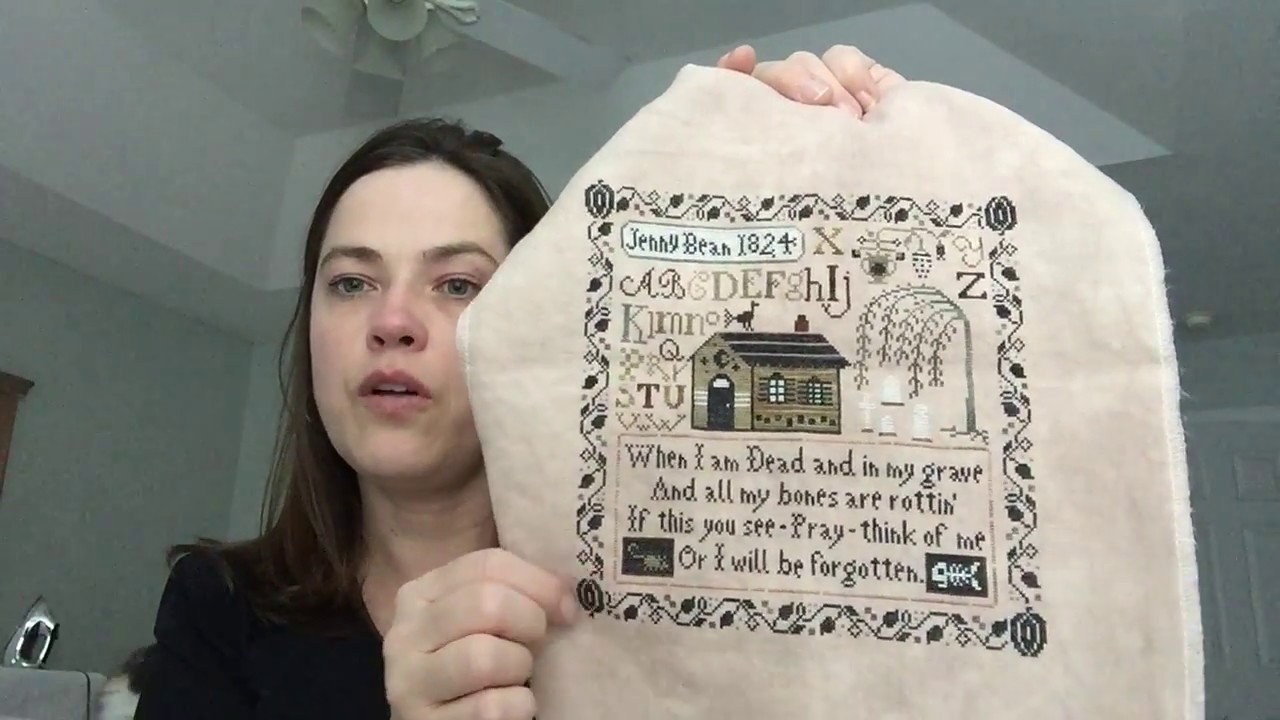 Jenny Bean 1824 X y
ABCDEFghIj Z
Klmno
PQr
STU
VW
When I am Dead and in my grave
And all my bones are rottin'
If this you see-Pray-think of me
Or I will be forgotten.